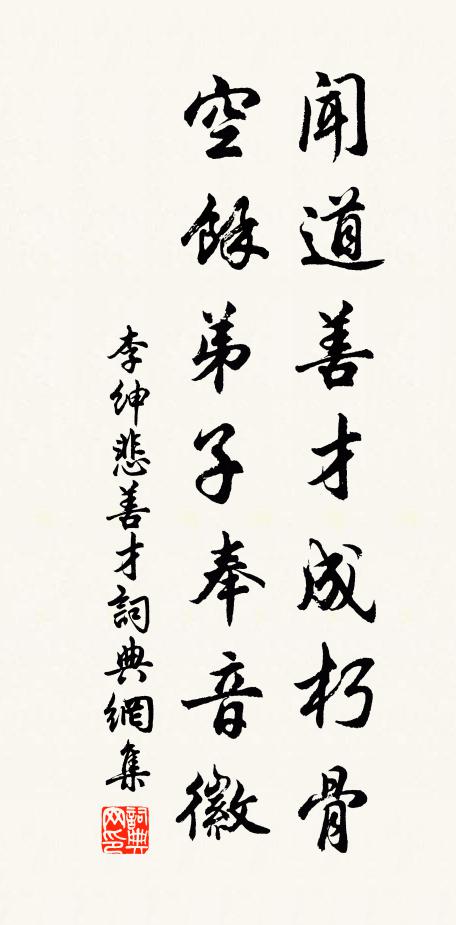 聞道善才成朽骨
空餘弟子奉音徽
李紳悲善才詞典網集
詞典网印